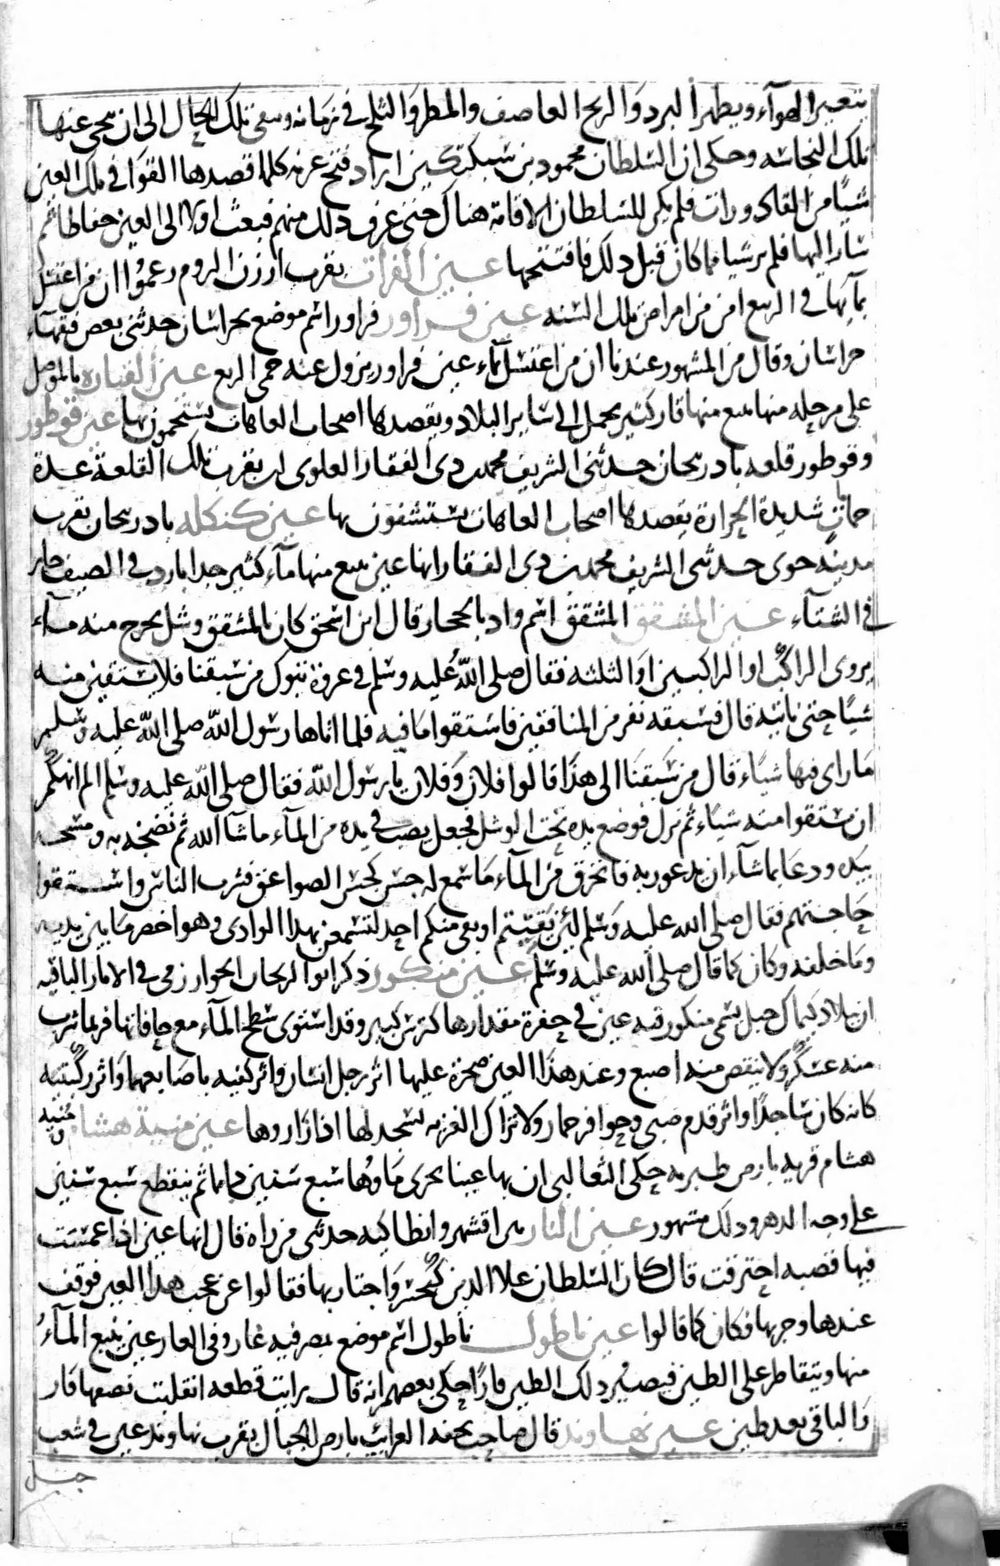 يتغير الهوآء ويظهر البرد والريح العاصف والمطر والثلج في زمانه ويبقى تلك الحال الى ان تنحى عنها
تلك النجاسة وحكى ان السلطان محمود بن سبكتكين اراد فتح غزنه كلما قصدها القوا في تلك العين
شيًا من القاذورات فلم يمكن للسلطان الاقامة هناك حتى عرف ذلك منهم فبعث اولا الى العين حفاظا ثم
سار اليها فلم ير شيا مما كان قبل ذلك فافتتحها عين الفرات بقرب ارزن الروم زعموا ان من اغتسل
بمآيها في الربيع امن من امراض تلك السنه عين فراور فراور اسم موضع بخراسان حدثنى بعض فقهآء
خراسان وقال من المشهور عندنا ان من اغتسل بمآء عين فراور يزول عنه حمى الربع عين القياره بالموصل
على مرحله منها ينبع منها قار كثير يحمل الى ساير البلاد ويقصدها اصحاب العاهات يستحمون بها عين قوطور
وقوطور قلعه باذربيجان حدثنى الشريف محمد بن ذى الفقار العلوى ان بقرب تلك القلعة عدة
حمات شديدة الحرارة يقصدها اصحاب العاهات يستشفون بها عين كنكله باذربيجان بقرب
مدينة خوى حدثنى الشريف محمد بن ذى الفقار انها عين ينبع منها مآء كثير جدا بارد في الصيف حار
في الشتآء عين المشقق المشقق اسم واد بالحجاز قال ابن اسحق كان بالمشقق وشل يخرج منه مآء
يروى الراكب او الراكبين او الثلثه فقال صلى الله عليه وسلم في غزوة تبوك من سبقنا فلا يستقين منه
شيًا حتى ناتيه قال فسبقه نفر من المنافقين فاستقوا ما فيه فلما اتاها رسول الله صلى الله عليه وسلم
ما راى فيها شياء قال من سبقنا الى هذا قالوا فلان وفلان يا رسول الله فقال صلى الله عليه وسلم الم انهكم
ان تستقوا منه شياء ثم نزل فوضع يده تحت الوشل فجعل يصب في يده من المآء ما شآ الله ثم نضخه به ومسحه
بيده ودعا بما شآء ان يدعو ربه فانخرق من المآء ما سمع له حس كحس الصواعق فشرب الناس واستقوا
حاجتهم فقال صلى الله عليه وسلم لئن بقيتم او بقى منكم احد لتسمعن بهذا الوادى وهو اخصر ما بين يديه
وما خلفه وكان كما قال صلى الله عليه وسلم عين منكور ذكر ابو الريحان الخوارزمى في الاثار الباقيه
ان ببلاد كيماك جبل يسمى منكور فيه عين في حفرة مقدارها كترس كبير وقد استوى سطح المآء مع حافاتها فربما شرب
منه عسكر ولا ينقص منه اصبع وعند هذا العين صخرة عليها اثر رجل انسان واثر كفيه باصابعهما واثر ركبتيه
كانه كان ساجدا واثر قدم صبى وحوافر حمار والاتراك الغزيه تسجد لها اذا زاروها عين منية هشام منيه
هشام قريه بارض طبريه حكى الثعالبى ان بها عينا يجرى ماوها سبع سنين دايما ثم ينقطع سبع سنين
على وجه الدهر وذلك مشهور عين النار بين اقشهر وانطاكيه حدثنى من راه قال انها عين اذا غمست
فيها قصبه احترقت قال كان السلطان علا الدين كيخسرو اجتاز بها فقالوا عن عجب هذا العين فوقف
عندها وجربها فكان كما قالوا عين ناطول ناطول اسم موضع بمصر فيه غار وفى الغار عين ينبع المآء
منها ويتقاطر على الطين فيصير ذلك الطين فارا حكى بعضهم انه قال رايت قطعه انقلبت نصفها فار
والباقى بعد طين عين نهاوند قال صاحب تحفة الغرايب بارض الجبال بقرب نهاوند عين في شعب
جبل